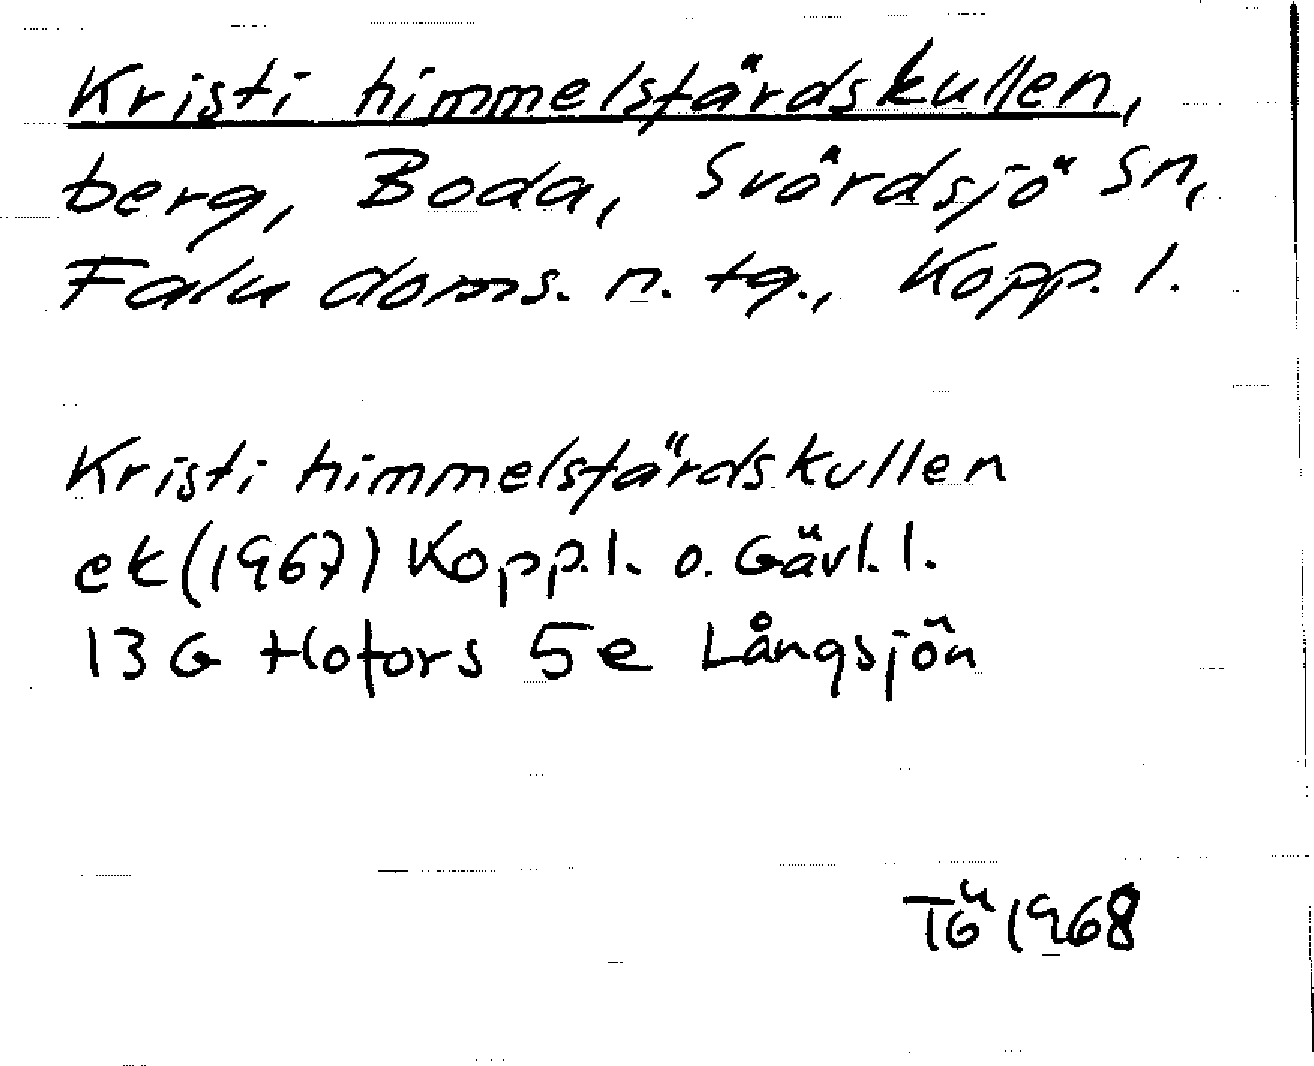 Kristi himmelsfärdskullen,
berg, Boda, Svärdsjö sn,
Falu doms. n. tg., Kopp. l.
Kristi himmelsfärdskullen
ek (1967) Kopp.l. o. Gävl. l.
13 G Hofors 5e Långsjön
TÖ 1968